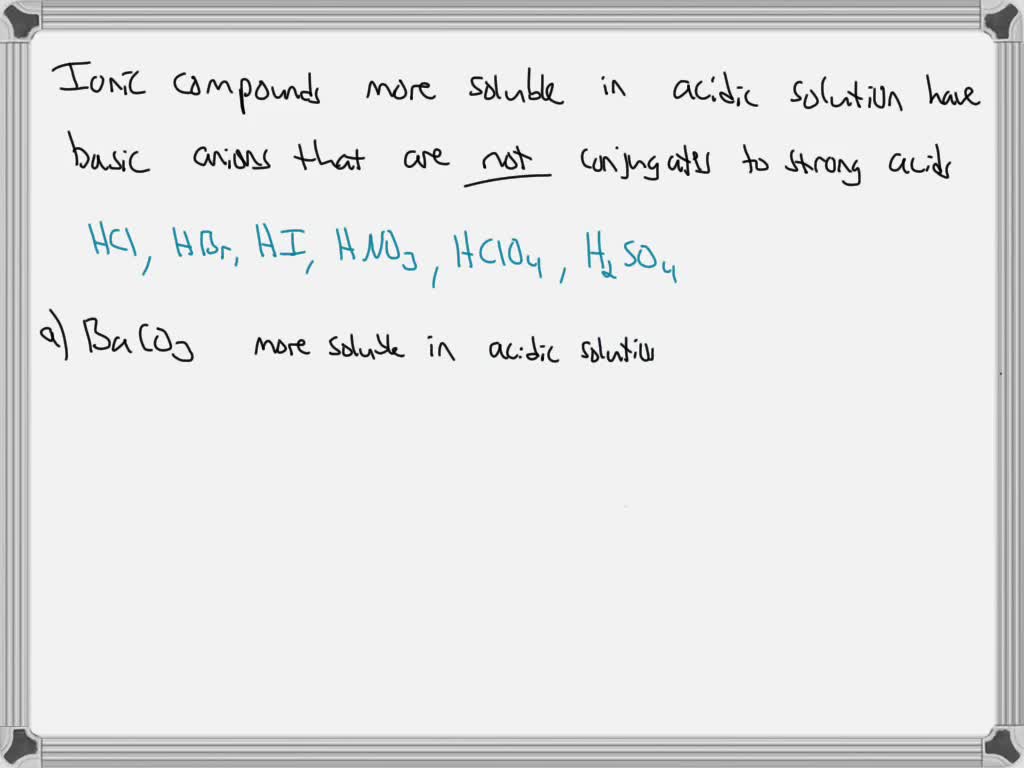 Ionic compounds more soluble in acidic solution have
basic anions that are not conjugates to strong acids
HCl, HBr, HI, HNO3, HClO4, H2SO4
a) BaCO3 more soluble in acidic solution